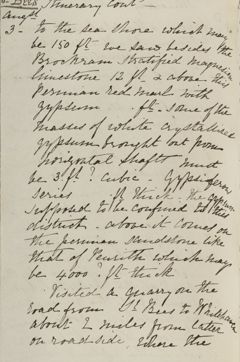 St Bees Itinerary Cont.
Augst
3 - to the sea shore which may
be 150 ft. we saw besides the
Brockram stratified magnesian
limestone 12 ft. & above this
Permian red marl with
gypsum ft. - some of the
masses of white crystalised
gypsum brought out from
horizontal shafts must
be 3 ft? cubic - Gypsiferous
series ft thick - the gypsum
supposed to be confined to this
district - above it comes on
the permian sandstone like
that of Penrith which may
be 4000? ft thick
Visited a quarry on the
road from St Bees to Whitehaven
about 2 miles from latter
on road side, where the